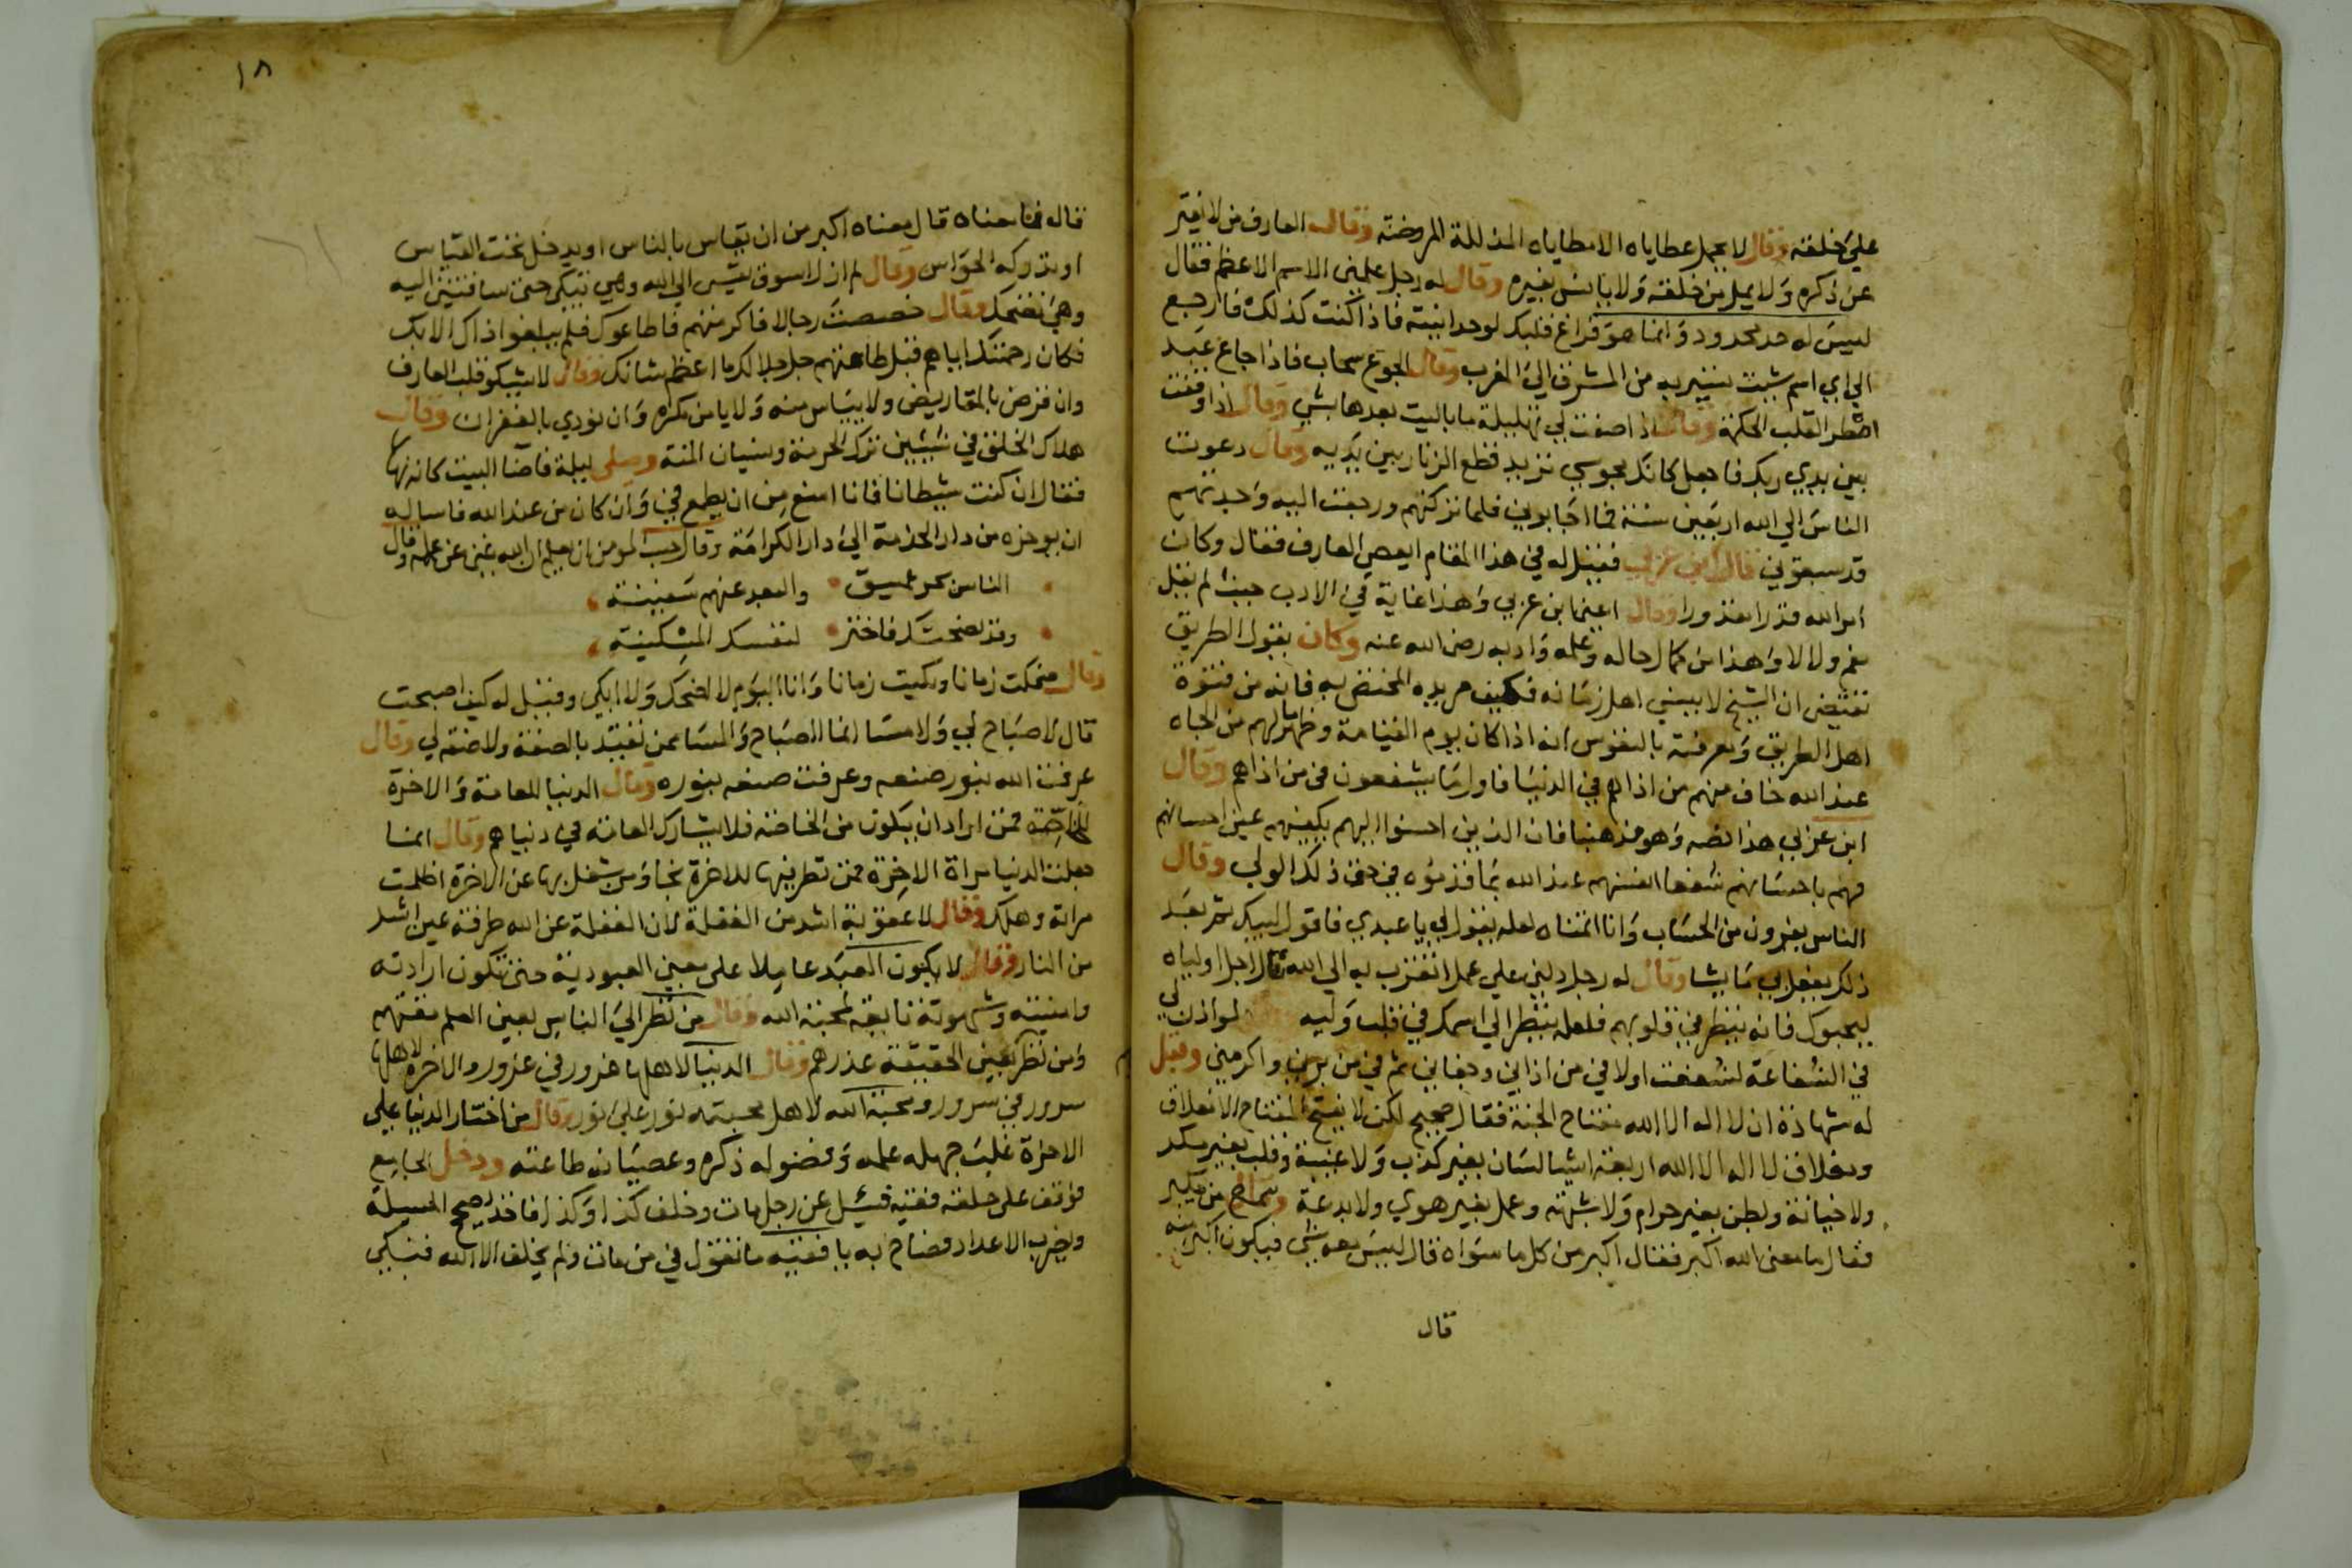 على خلقه وقال لا يحمل عطاياه الا مطاياه المذللة المروضة وقال العارف من لا يفتر
عن ذكره ولا يمل من خلقته ولا يانس بغيره وقال له رجل علمني الاسم الاعظم فقال
ليس له حد محدود وانما هو فراغ قلبك لوحدانيته فاذا كنت كذلك فارجع
الى اي اسم شيت تسير به من المشرق الى المغرب وقال الجوع سحاب فاذا جاع عبد
امطر القلب الحكمة وقال اذا صفت لي تهليلة ما باليت بعدها بشي وقال اذا وقفت
بين يدي ربك فاجعل كانك مجوسي تريد قطع الزنار بين يديه وقال دعوت
الناس الى الله اربعين سنة فما اجابوني فلما تركتهم ورجعت اليه وجدتهم
قد سبقوني قال ابن عربي فقيل له في هذا المقام ايعصي العارف فقال وكان
امر الله قدرا مقدورا وقال اعني ابن عربي وهذا غاية في الادب حيث لم يقل
نعم ولا لا وهذا من كمال حاله وعلمه وادبه رضي الله عنه وكان يقول الطريق
تقتضي ان الشيخ لا ينسى اهل زمانه فكيف مريده المختص به فانه من فتوة
اهل الطريق ومعرفته بالنفوس انه اذا كان يوم القيامة وظهر ما لهم من الجاه
عند الله خاف منهم من اذاهم في الدنيا فاول ما يشفعون في من اذاهم وقال
ابن عربي هذا نصه وهو مذهبنا فان الذين احسنوا اليهم يكفيهم عين احسانهم
فهم باحسانهم شفعا انفسهم عند الله بما قدموه في حق ذلك الولي وقال
الناس يفرون من الحساب وانا اتمناه لعله يقول لي يا عبدي فاقول لبيك ثم بعد
ذلك يفعل بي ما يشا وقال له رجل دلني على عمل اتقرب به الى الله قال احب اولياه
ليحبوك فانه ينظر في قلوبهم فلعله ينظر الى اسمك في قلب وليه لو اذن لي
في الشفاعة لشفعت اولا في من اذاني وجفاني ثم في من برني واكرمني وقيل
له شهادة ان لا اله الا الله مفتاح الجنة فقال صحيح لكن لا يفتح المفتاح الا مغلاق
ومغلاق لا اله الا الله اربعة اشيا لسان بغير كذب ولا غيبة وقلب بغير مكر
ولا خيانة وبطن بغير حرام ولا شبهة وعمل بغير هوى ولا بدعة
فقال ما معنى الله اكبر فقال اكبر من كل ما سواه قال ليس معه شي فيكون اكبر منه
قال
١٨
قال فما معناه قال معناه اكبر من ان يقاس بالناس او يدخل تحت القياس
او تدركه الحواس وقال لم ازل اسوق نفسي الى الله وهي تبكي حتى ساقتني اليه
وهي تضحك وقال خصصت رجالا فاكرمتهم فاطاعوك فلم يبلغوا ذاك الا بك
فكان رحمتك اياهم قبل طاعتهم جل جلالك ما اعظم شانك وقال لا يشكو قلب العارف
وان قرض بالمقاريض ولا يياس منه ولا يامن مكره وان نودي بالغفران وقال
هلاك الخلق في شيئين ترك الحرمة ونسيان المنة وصلى ليلة فاضا البيت كانه نهار
فقال ان كنت شيطانا فانا امنع من ان يطمع في وان كان من عند الله فاساله
ان يوخره من دار الخدمة الى دار الكرامة وقال حسب المومن ان يعلم ان الله غني عن عمله وقال
الناس بحر عميق والبعد عنهم سفينة
وقد نصحتك فاختر لنفسك المسكينة
وقال ضحكت زمانا وبكيت زمانا وانا اليوم لا اضحك ولا ابكي وقيل له كيف اصبحت
قال لا صباح لي ولا مسا انما الصباح والمسا لمن تقيد بالصفة ولا صفة لي وقال
عرفت الله بنور صنعه وعرفت صنعه بنوره وقال الدنيا للعامة والاخرة
للخاصة فمن اراد ان يكون من الخاصة فلا يشارك العامة في دنياهم وقال انما
جعلت الدنيا مراة الاخرة فمن نظر فيها للاخرة نجا ومن شغل بها عن الاخرة اظلمت
مراته وهلك وقال لا عقوبة اشد من الغفلة لان الغفلة عن الله طرفة عين اشد
من النار وقال لا يكون العبد عاملا على معنى العبودية حتى تكون ارادته
وامنيته وشهوته تابعة لمحبة الله وقال من نظر الى الناس بعين العلم مقتهم
ومن نظر بعين الحقيقة عذرهم وقال الدنيا لاهلها غرور في غرور والاخرة لاهلها
سرور في سرور ومحبة الله لاهل محبته نور على نور وقال من اختار الدنيا على
الاخرة غلب جهله علمه وفضوله ذكره وعصيانه طاعته ودخل الجامع
فوقف على حلقة فقيه فسئل عن رجل مات وخلف كذا وكذا فاخذ يصحح المسيلة
ويضرب الاعداد فصاح به يا فقيه ما تقول في من مات ولم يخلف الا الله فبكى